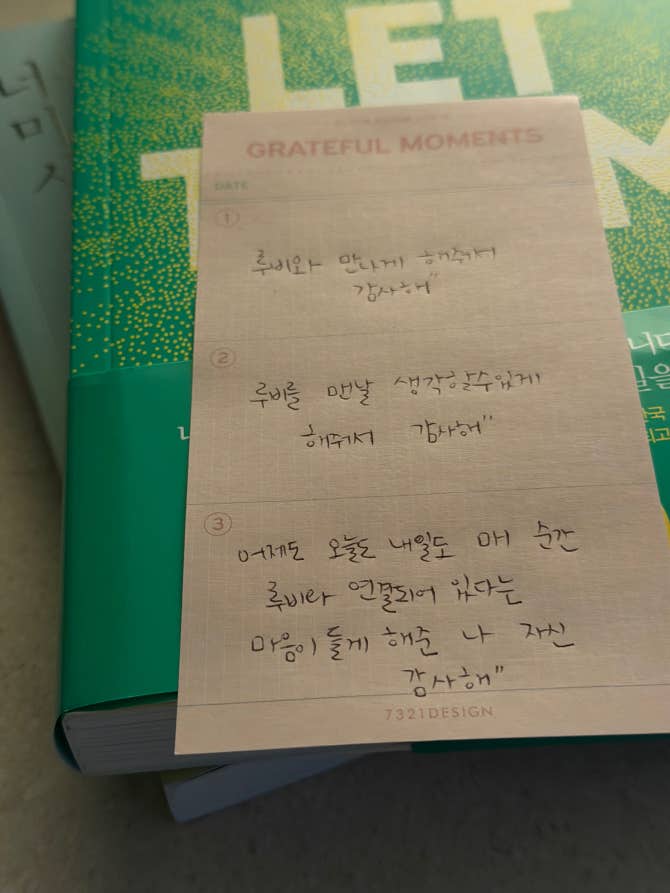 LET
GRATEFUL MOMENTS
DATE
①
루비와 만나게 해줘서
감사해"
②
루비를 맨날 생각할수있게
해줘서 감사해"
③
어제도 오늘도 내일도 매 순간
루비랑 연결되어 있다는
마음이 들게 해준 나 자신
감사해"
7321DESIGN